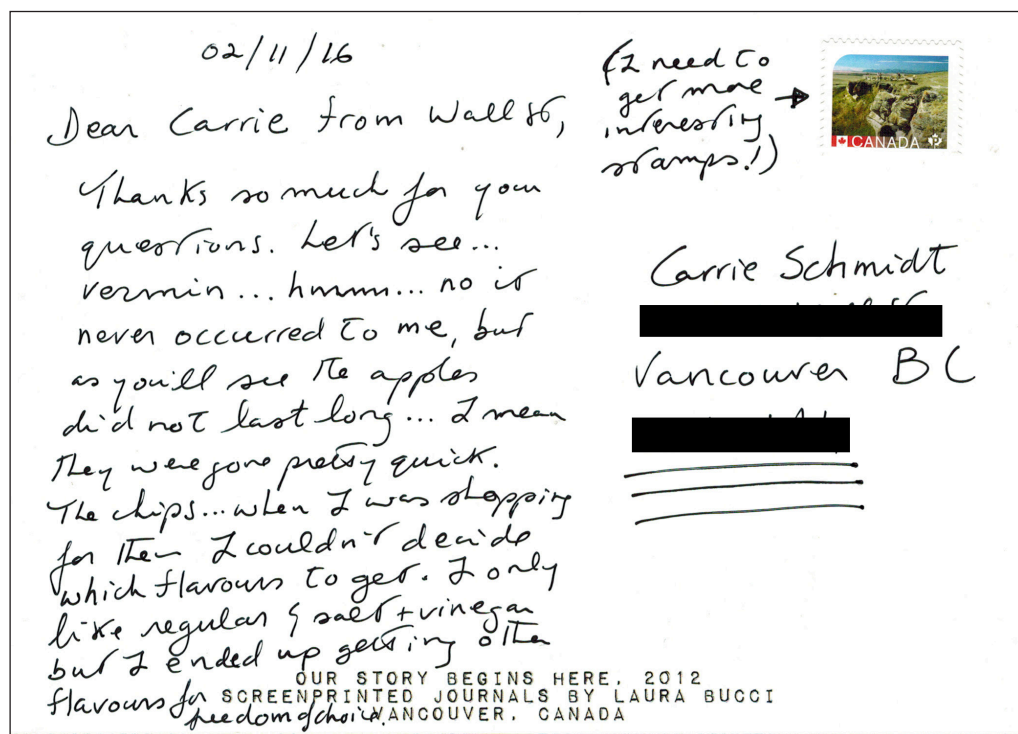 02/11/16
Dear Carrie from Wall St,
Thanks so much for your
questions. Let's see...
vermin... hmmm... no it
never occurred to me, but
as you'll see the apples
did not last long... I mean
they were gone pretty quick.
The chips... when I was shopping
for them I couldn't decide
which flavours to get. I only
like regular & salt + vinegar
but I ended up getting other
flavours for
freedom of choice.
(I need to
get more
interesting
stamps!)
CANADA P
Carrie Schmidt
Vancouver BC
OUR STORY BEGINS HERE, 2012
SCREENPRINTED JOURNALS BY LAURA BUCCI
VANCOUVER, CANADA